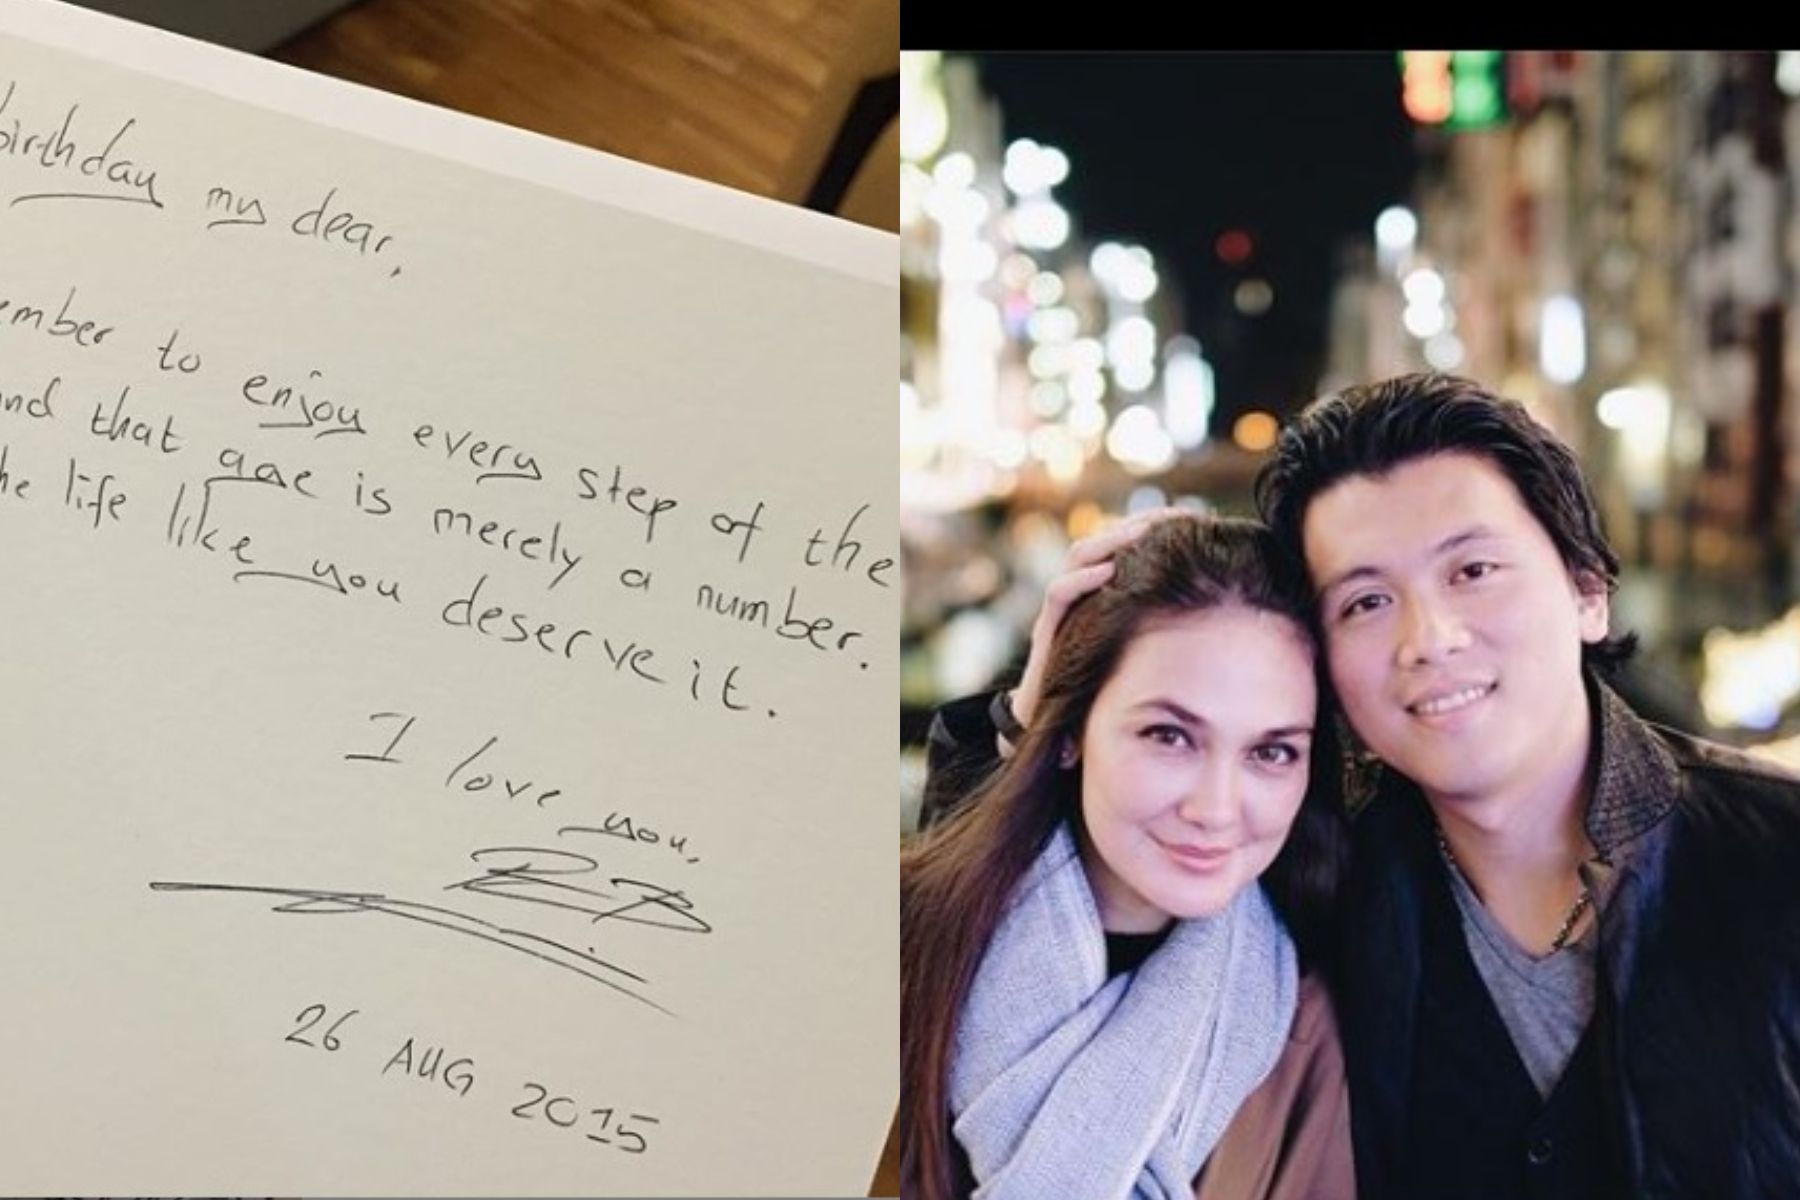 birthday my dear,
ember to enjoy every step of the
nd that age is merely a number.
he life like you deserve it.
I love you,
26 AUG 2015